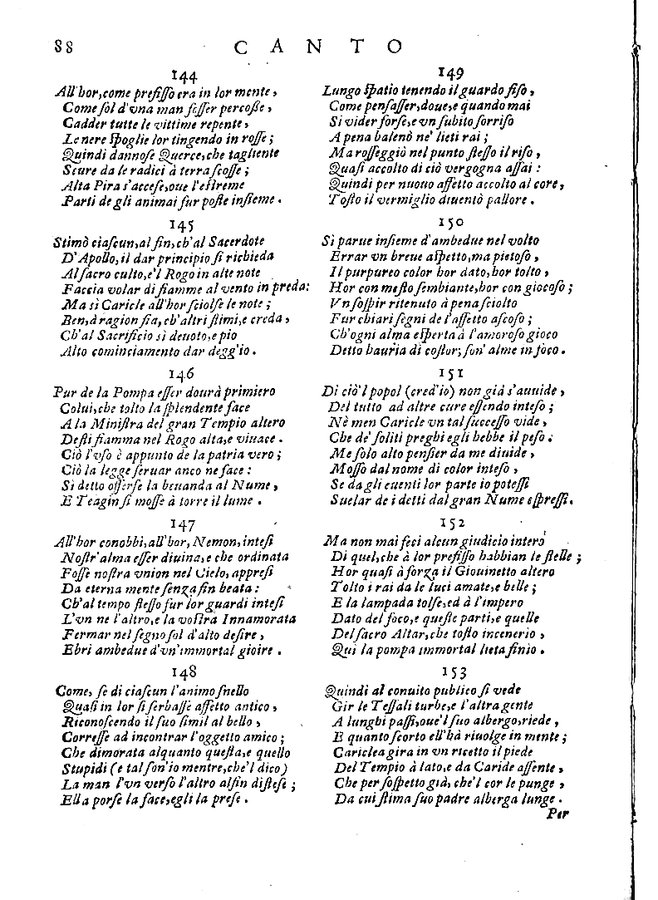 88
CANTO
144
All'hor, come prefisso era in lor mente,
Come sol d'vna man fusser percosse,
Cadder tutte le vittime repente,
Le nere spoglie lor tingendo in rosse;
Quindi dannose Querce, che tagliente
Scure da le radici à terra scosse;
Alta Pira s'accese, oue l'estreme
Parti de gli animai fur poste insieme.
145
Stimò ciascun, al fin, ch'al Sacerdote
D'Apollo, il dar principio si richieda
Al sacro culto, e'l Rogo in alte note
Faccia volar di fiamme al vento in preda:
Ma sì Caricle all'hor sciolse le note;
Ben, à ragion sia, ch'altri stimi, e creda,
Ch'al Sacrificio sì deuoto, e pio
Alto cominciamento dar degg'io.
146
Pur de la Pompa esser dourà primiero
Colui, che tolto la splendente face
A la Ministra del gran Tempio altero
Desti fiamma nel Rogo alta, e viuace.
Ciò l'vso è appunto de la patria vero;
Ciò la legge seruar anco ne face:
Sì detto offerse la beuanda al Nume,
E Teagin si mosse à torre il lume.
147
All'hor conobbi, all'hor, Nemon, intesi
Nostr'alma esser diuina, e che ordinata
Fosse nostra vnion nel Cielo, appresi
Da eterna mente senza fin beata:
Ch'al tempo stesso fur lor guardi intesi
L'vn ne l'altro, e la vostra Innamorata
Fermar nel segno sol d'alto desire,
Ebri ambedue d'vn'immortal gioire.
148
Come, se di ciascun l'animo snello
Quasi in lor si serbasse affetto antico,
Riconoscendo il suo simil al bello,
Corresse ad incontrar l'oggetto amico;
Che dimorata alquanto questa, e quello
Stupidi (e tal son'io mentre, che'l dico)
La man l'vn verso l'altro alfin distese;
Ella porse la face, egli la prese.
149
Lungo spatio tenendo il guardo fiso,
Come pensasser, doue, e quando mai
Si vider forse, e vn subito sorriso
A pena balenò ne' lieti rai;
Ma rosseggiò nel punto stesso il riso,
Quasi accolto di ciò vergogna assai:
Quindi per nuouo affetto accolto al core,
Tosto il vermiglio diuentò pallore.
150
Sì parue insieme d'ambedue nel volto
Errar vn breue aspetto, ma pietoso,
Il purpureo color hor dato, hor tolto,
Hor con mesto sembiante, hor con giocoso;
Vn sospir ritenuto à pena sciolto
Fur chiari segni de l'affetto ascoso;
Ch'ogni alma esperta à l'amoroso gioco
Detto hauria di costor; son'alme in foco.
151
Di ciò'l popol (cred'io) non già s'auuide,
Del tutto ad altre cure essendo inteso;
Nè men Caricle vn tal successo vide,
Che de' soliti preghi egli hebbe il peso.
Me solo alto pensier da me diuide,
Mosso dal nome di color inteso,
Se da gli euenti lor parte io potessi
Suelar de i detti dal gran Nume espressi.
152
Ma non mai feci alcun giudicio intero
Di quel, che à lor prefisso habbian le stelle;
Hor quasi à forza il Giouinetto altero
Tolto i rai da le luci amate, e belle;
E la lampada tolse, ed à l'impero
Dato del foco, e queste parti, e quelle
Del sacro Altar, che tosto incenerio,
Quì la pompa immortal lieta finio.
153
Quindi al conuito publico si vede
Gir le Tessali turbe, e l'altra gente
A lunghi passi, oue'l suo albergo, riede,
E quanto scorto ell'hà riuolge in mente;
Cariclea gira in vn ricetto il piede
Del Tempio à lato, e da Caride assente,
Che per sospetto già, che'l cor le punge,
Da cui stima suo padre alberga lunge.
Per